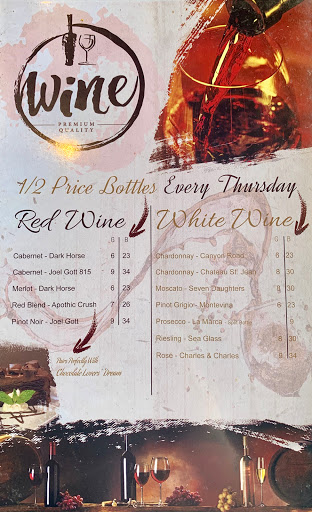 Wine
PREMIUM
QUALITY
1/2 Price Bottles Every Thursday
Red Wine
G B
Cabernet - Dark Horse 6 23
Cabernet - Joel Gott 815 9 34
Merlot - Dark Horse 6 23
Red Blend - Apothic Crush 7 26
Pinot Noir - Joel Gott 9 34
Pairs Perfectly With
Chocolate Lovers' Dream
White Wine
G B
Chardonnay - Canyon Road 6 23
Chardonnay - Chateau St. Jean 8 30
Moscato - Seven Daughters 8 30
Pinot Grigio - Montevina 6 23
Prosecco - La Marca - Split Bottle 9
Riesling - Sea Glass 8 30
Rosé - Charles & Charles 9 34